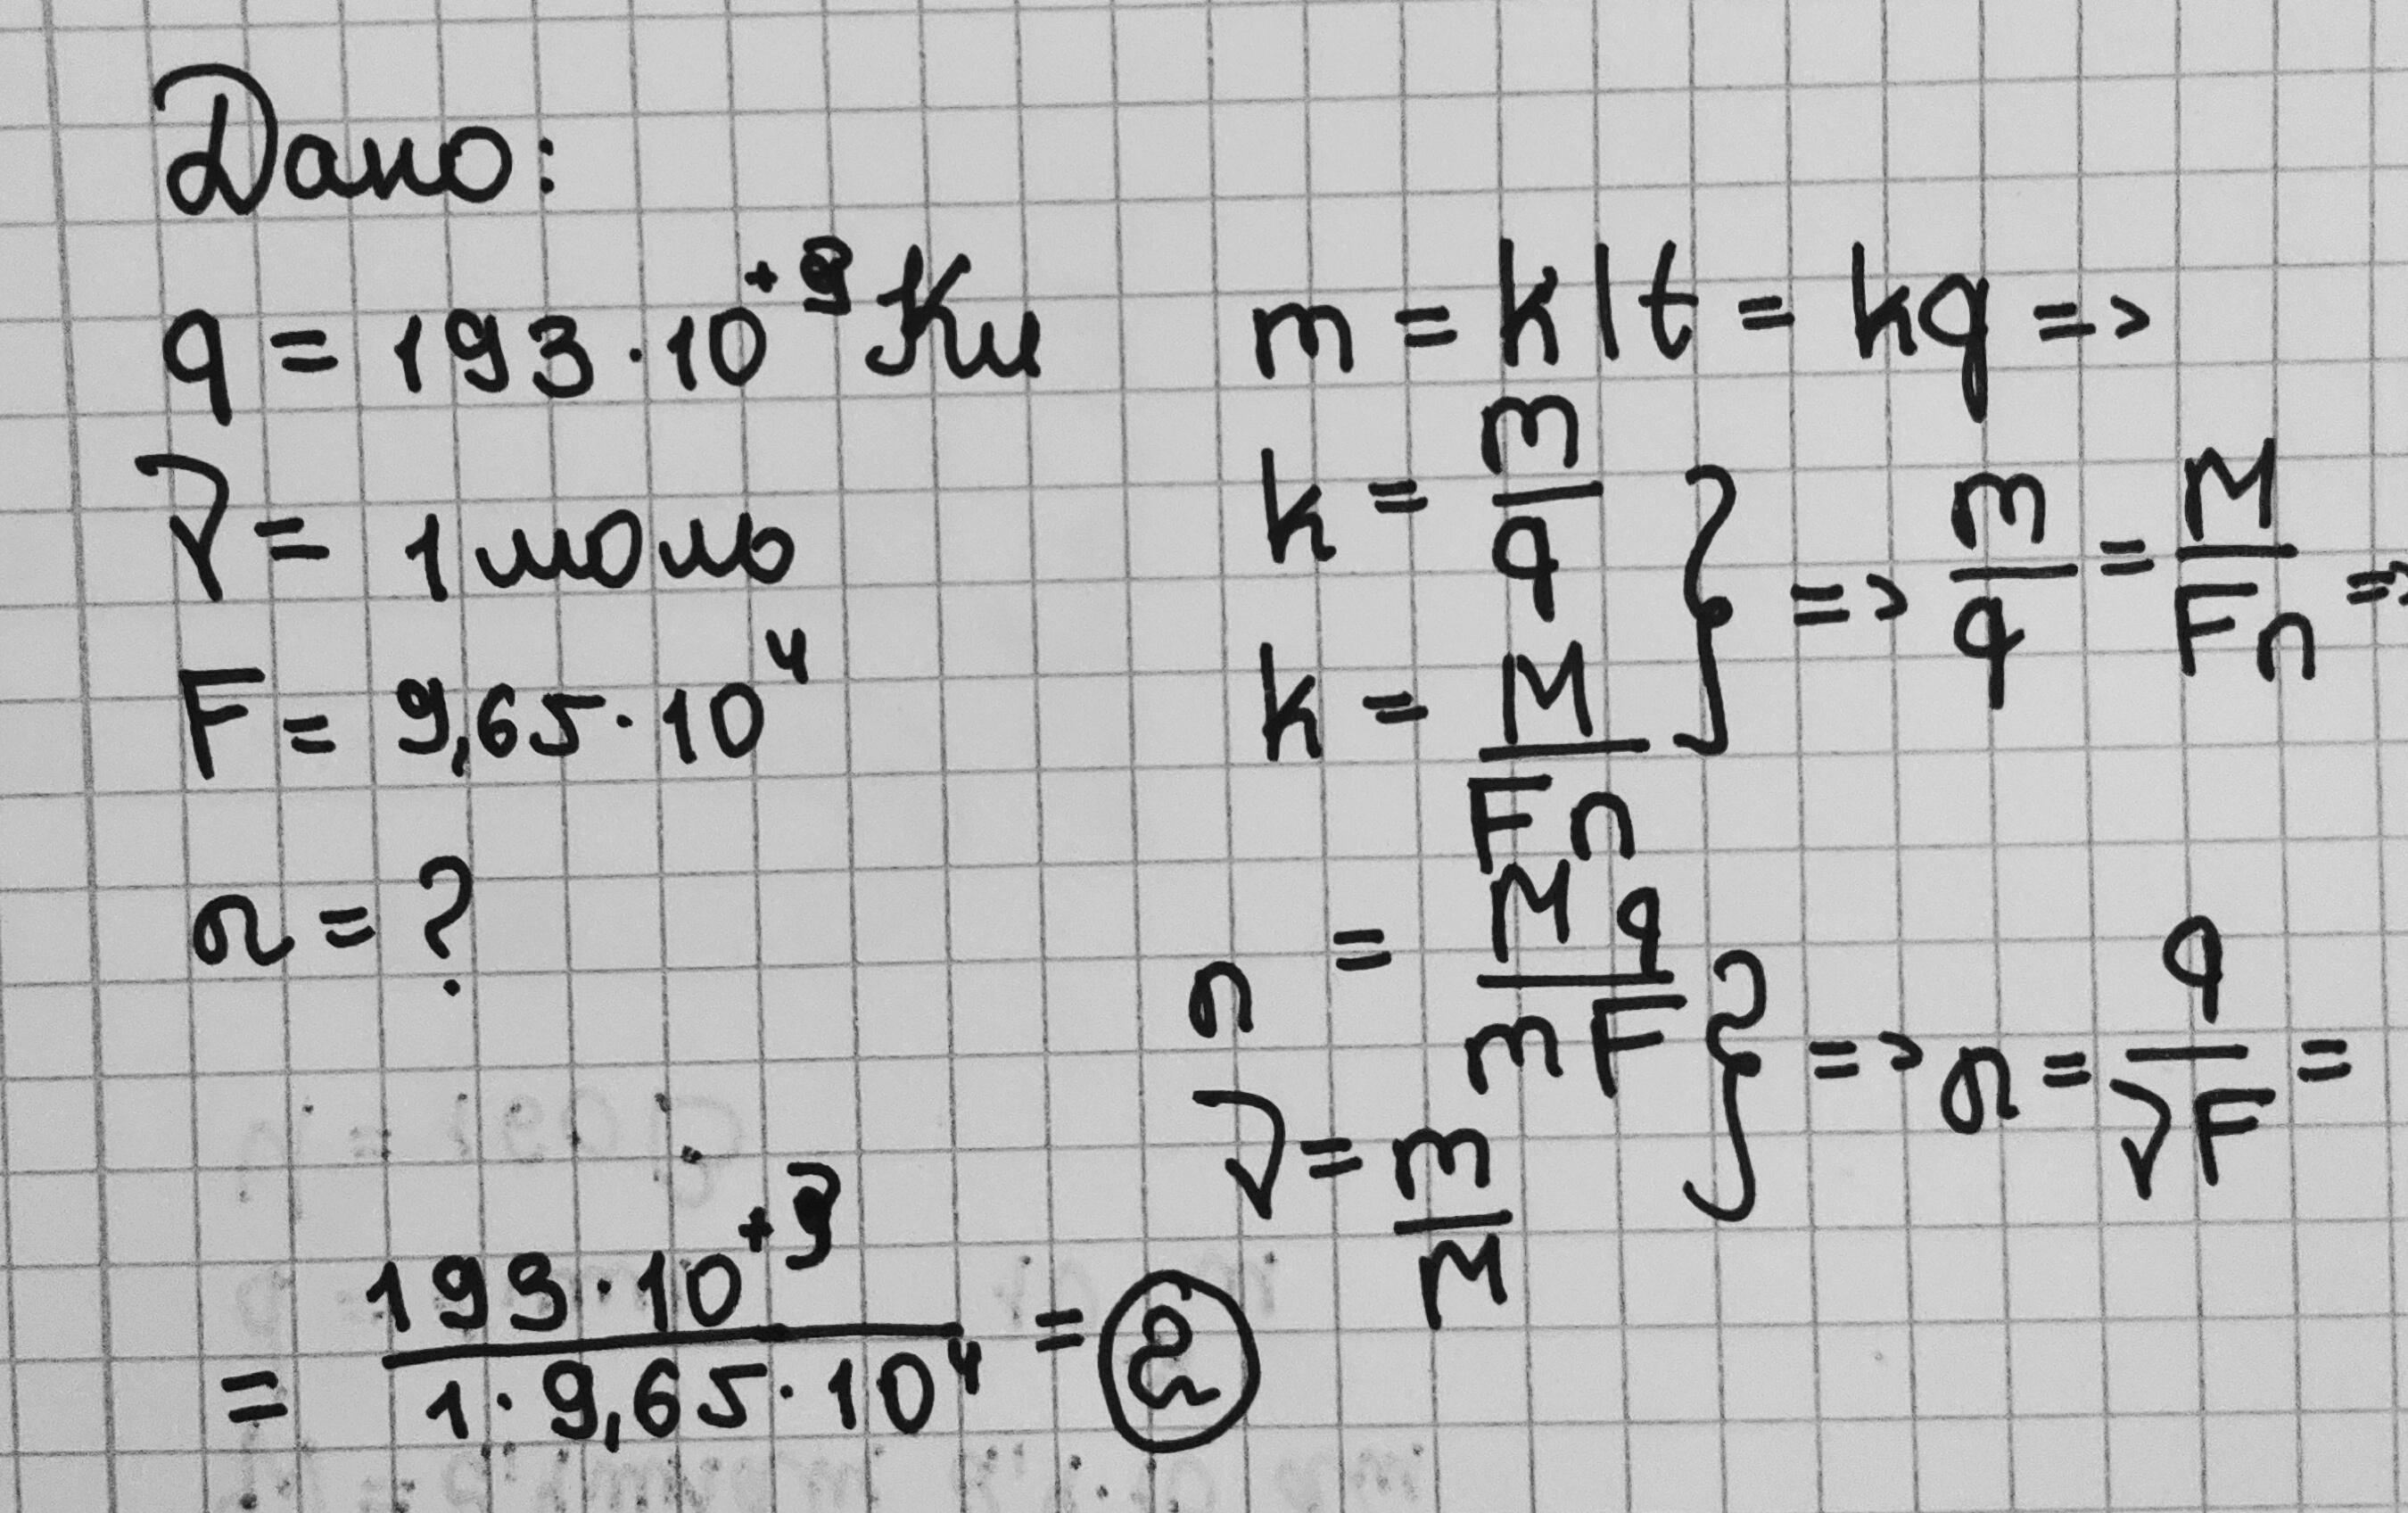 Дано:
q = 193·10⁺³ Кл
ν = 1 моль
F = 9,65·10⁴
n = ?
m = kIt = kq =>
k = m/q
k = M/Fn
} => m/q = M/Fn =>
n = Mq/mF
ν = m/M
} => n = q/νF =
= 193·10⁺³/1·9,65·10⁴ = 2